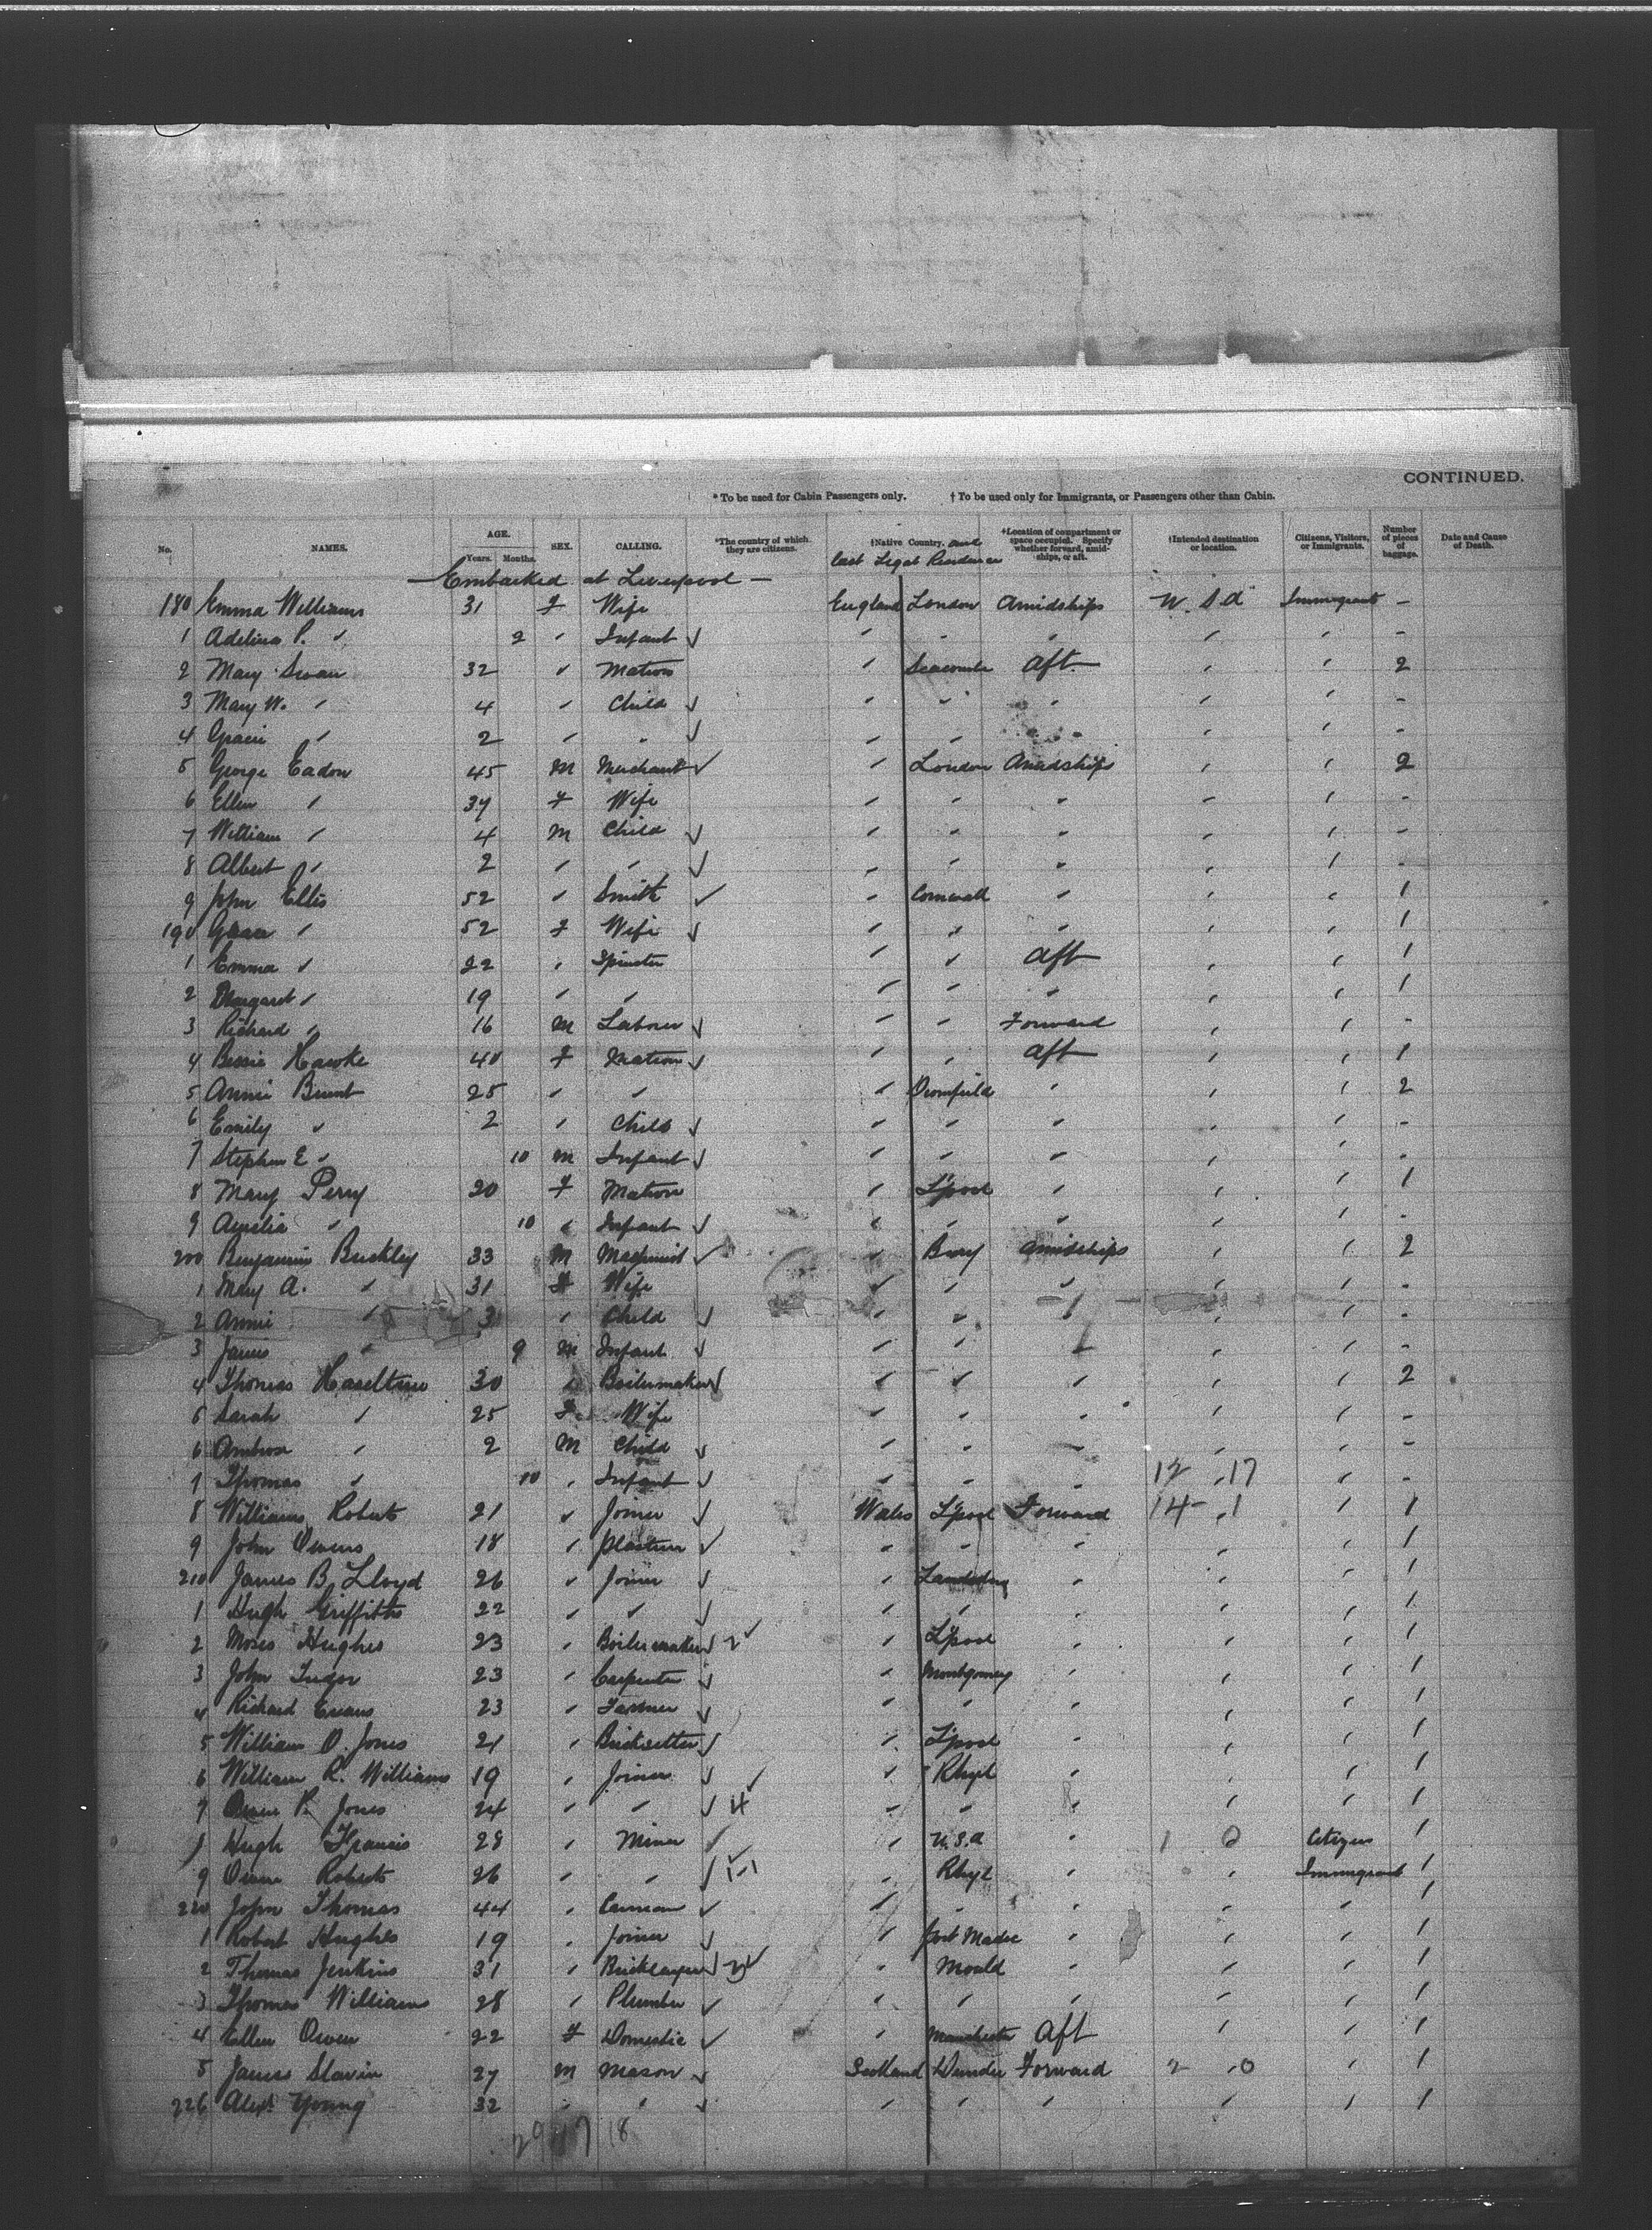 CONTINUED.
* To be used for Cabin Passengers only. † To be used only for Immigrants, or Passengers other than Cabin.
No. NAMES. AGE. Years. Months. SEX. CALLING. *The country of which they are citizens. †Native Country. and last Legal Residence †Location of compartment or space occupied. Specify whether forward, amidships, or aft. †Intended destination or location. Citizens, Visitors, or Immigrants. Number of pieces of baggage. Date and Cause of Death.
— Embarked at Liverpool —
180 Emma Williams 31 F Wife England London Amidships U.S.A Immigrants -
1 Adelina P. " 2 " Infant ✓ " " " " " -
2 Mary Swan 32 " Matron " Seacombe Aft " " 2
3 Mary W. " 4 " Child ✓ " " " " " -
4 Gracie " 2 " " ✓ " " " " " -
5 George Eadon 45 M Merchant ✓ " London Amidships " " 2
6 Ellen " 37 F Wife " " " " " -
7 William " 4 M Child ✓ " " " " " -
8 Albert " 2 " " ✓ " " " " " -
9 John Ellis 52 " Smith ✓ " Cornwall " " " 1
190 " 52 F Wife ✓ " " " " " 1
1 Emma " 22 " Spinster " " Aft " " 1
2 Margaret " 19 " " " " " " " 1
3 Richard " 16 M Laborer ✓ " " Forward " " -
4 Bessie Hawke 40 F Matron ✓ " " Aft " " 1
5 Annie Brunt 25 " " " Dronfield " " " 2
6 Emily " 2 " Child ✓ " " " " " -
7 Stephen E " 10 M Infant ✓ " " " " " -
8 Mary Perry 20 F Matron " L'pool " " " 1
9 Amelia " 10 " Infant ✓ " " " " " -
200 Benjamin Buckley 33 M Machinist ✓ " Bury Amidships " " 2
1 Mary A. " 31 F Wife " " " " " -
2 Annie " 3 " Child ✓ " " " " " -
3 James " 9 M Infant ✓ " " " " " -
4 Thomas Haseltine 30 " Boilermaker ✓ " " " " " 2
5 Sarah " 25 F Wife " " " " " -
6 Ambrose " 2 M Child ✓ " " " " " -
7 Thomas " 10 " Infant ✓ " " " 12 " 17 " -
8 William Roberts 21 " Joiner ✓ Wales L'pool Forward 14 - " 1 " 1
9 John Owens 18 " Plasterer ✓ " " " " " 1
210 James B Lloyd 26 " Joiner ✓ " " " " 1
1 Hugh Griffiths 22 " " ✓ " " " " " 1
2 Moses Hughes 23 " Boilermaker ✓ 2 ✓ " L'pool " " " 1
3 John Tudor 23 " Carpenter ✓ " Montgomery " " " 1
4 Richard Evans 23 " Farmer ✓ " " " " " 1
5 William O. Jones 21 " Bricksetter ✓ " L'pool " " " 1
6 William R. Williams 19 " Joiner ✓ " Rhyl " " " 1
7 Owen R. Jones 24 " " ✓ 4 ✓ " " " " " 1
8 Hugh Francis 28 " Miner ✓ " U.S.A " 1 0 Citizen 1
9 Owen Roberts 26 " " ✓ 1-1 " Rhyl " " Immigrant 1
220 John Thomas 44 " ✓ " " " " " 1
1 Robert Hughes 19 " Joiner ✓ " Port Madoc " " " 1
2 Thomas Jenkins 31 " Bricklayer ✓ " Mould " " " 1
3 Thomas Williams 28 " Plumber ✓ " " " " " 1
4 Ellen Owen 22 F Domestic ✓ " Manchester Aft " " 1
5 James Slavin 27 M Mason ✓ Scotland Dundee Forward 2 " 0 " 1
226 Alexr Young 32 " " ✓ " " " " " 1
29 17 18